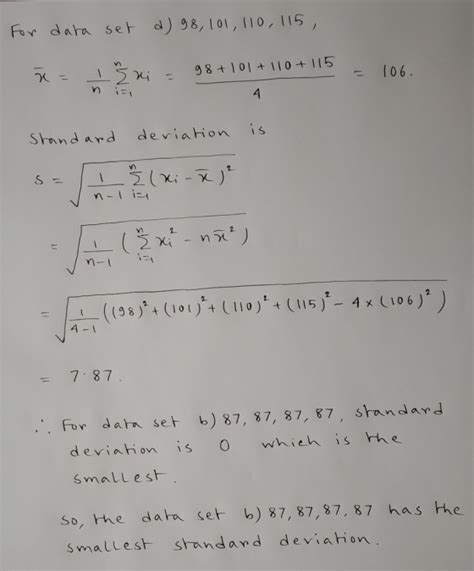 For data set d) 98, 101, 110, 115,
x̄ = 1/n Σ_{i=1}^{n} xi = (98 + 101 + 110 + 115)/4 = 106.
Standard deviation is
s = √(1/(n-1) Σ_{i=1}^{n} (xi - x̄)²)
= √(1/(n-1) (Σ_{i=1}^{n} xi² - n x̄²))
= √(1/(4-1) ((98)² + (101)² + (110)² + (115)² - 4 × (106)²))
= 7.87.
∴ For data set b) 87, 87, 87, 87, standard
deviation is 0 which is the
smallest.
So, the data set b) 87, 87, 87, 87 has the
smallest standard deviation.